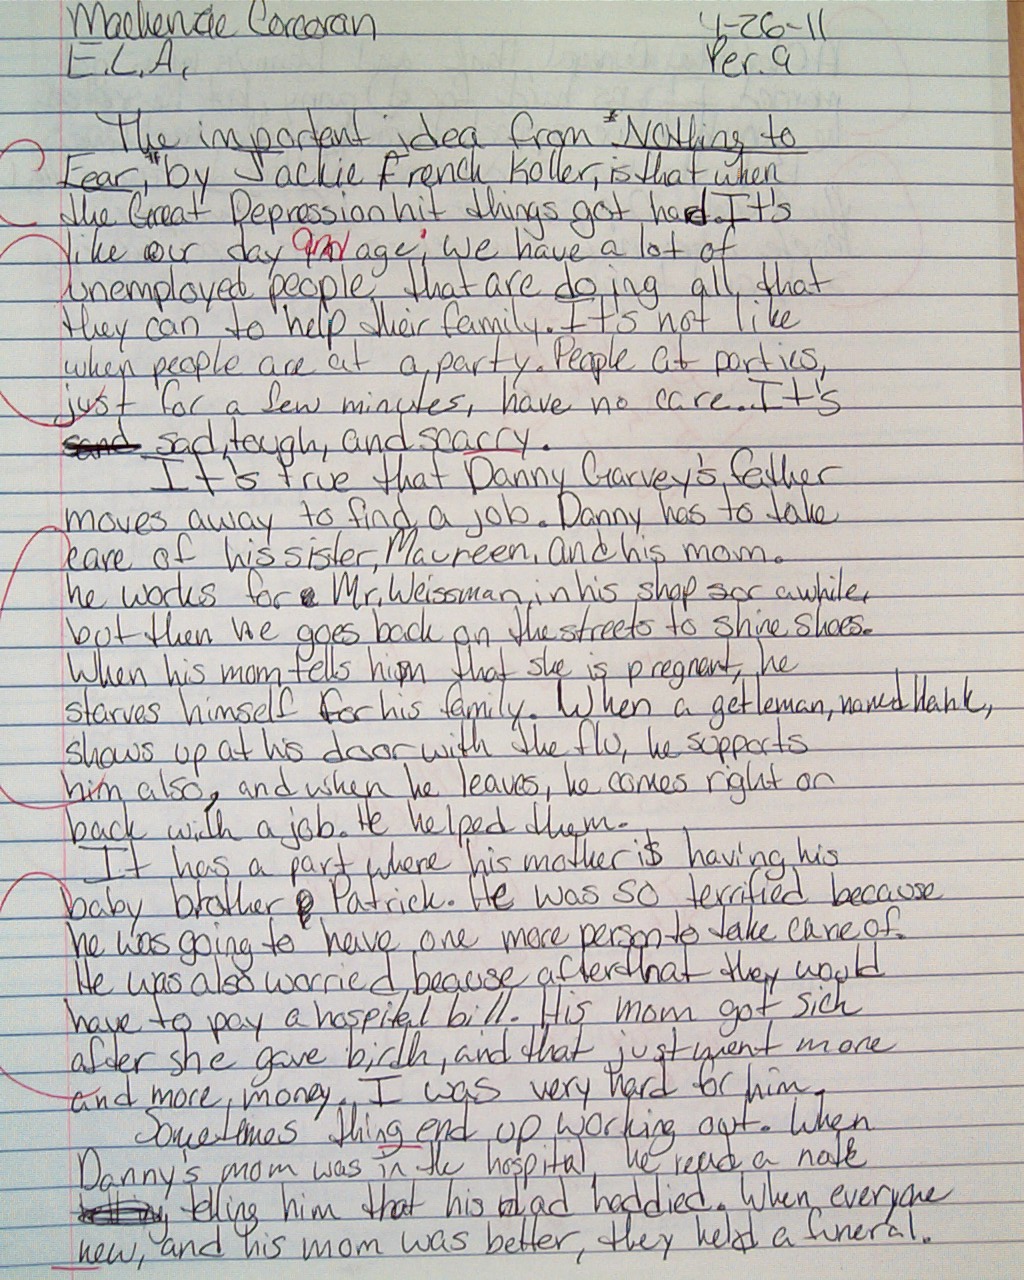 Mackenzie Corcoran 4-26-11
E.L.A. Per. 9
The important idea from "Nothing to
Fear," by Jackie French Koller, is that when
the Great Depression hit things got hard. It's
like our day and age; we have a lot of
unemployed people that are doing all that
they can to help their family. It's not like
when people are at a party. People at parties,
just for a few minutes, have no care. It's
sad, tough, and scarry.
It's true that Danny Garvey's father
moves away to find a job. Danny has to take
care of his sister, Maureen, and his mom.
he works for Mr. Weissman in his shop for awhile,
but then he goes back on the streets to shine shoes.
When his mom tells him that she is pregnant, he
starves himself for his family. When a getleman, named Hank,
shows up at his door with the flu, he supports
him also, and when he leaves, he comes right on
back with a job. He helped them.
It has a part where his mother is having his
baby brother Patrick. He was so terrified because
he was going to have one more person to take care of.
He was also worried because after that they would
have to pay a hospital bill. His mom got sick
after she gave birth, and that just ment more
and more money. I was very hard for him.
Sometimes thing end up working out. When
Danny's mom was in the hospital, he read a note
telling him that his dad had died. When everyone
new, and his mom was better, they held a funeral.